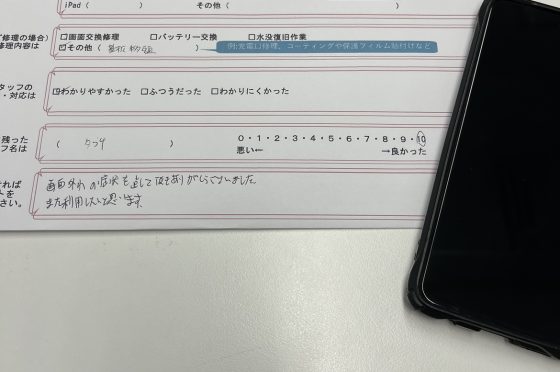 iPad（　　　　　　　　）　その他（　　　　　　　　）
修理の場合）
修理内容は
□画面交換修理　□バッテリー交換　□水没復旧作業
☑その他（基板　　）
例:充電口修理、コーティングや保護フィルム貼付けなど
タッフの
・対応は
☑わかりやすかった　□ふつうだった　□わかりにくかった
残った
フ名は
（　　　　）
0・1・2・3・4・5・6・7・8・9・10
悪い←　→良かった
ければ
トを
さい。
画面外れの症状も直して頂きありがとうございました
また利用したいと思います